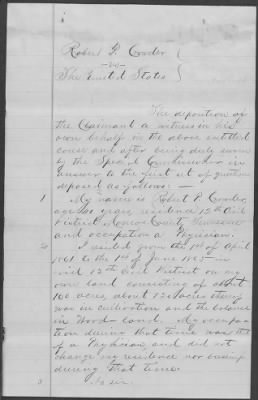 Robert P. Crowder
vs
The United States
The deposition of
the Claimant a witness in his
own behalf in the above entitled
cause and after being duly sworn
by the Special Commissioner in
answer to the first set of questions
deposed as follows: —
1 My name is Robert P. Crowder,
age years, residence 12th Civil
District Monroe County Tennessee
and occupation a Physician.
2 I resided from the 1st of April
1861 to the 1st of June 1865 in
said 12th Civil District on my
own land consisting of about
160 acres, about 120 acres
was in cultivation and the balance
in Wood land. My occupa
tion during that time was that
of a Physician and did not
change my residence nor business
during that time.
3 No sir.